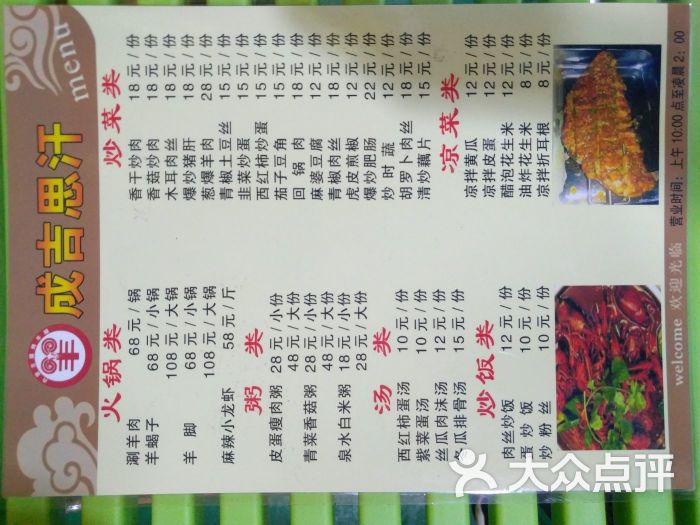 成吉思汗
menu
火锅类
涮羊肉 68元/锅
羊蝎子 68元/小锅
108元/大锅
羊脚 68元/小锅
108元/大锅
麻辣小龙虾 58元/斤
粥类
皮蛋瘦肉粥 28元/小份
48元/大份
青菜香菇粥 28元/小份
48元/大份
泉水白米粥 18元/小份
28元/大份
汤类
西红柿蛋汤 10元/份
紫菜蛋汤 10元/份
丝瓜肉沫汤 12元/份
冬瓜排骨汤 15元/份
炒饭类
肉丝炒饭 12元/份
蛋炒饭 10元/份
炒粉丝 10元/份
炒菜类
香干炒肉 18元/份
香菇炒肉 18元/份
木耳肉丝 18元/份
爆炒猪肝 18元/份
葱爆羊肉 28元/份
青椒土豆丝 15元/份
韭菜炒蛋 15元/份
西红柿炒蛋 15元/份
茄子豆角 12元/份
回锅肉 18元/份
麻婆豆腐 12元/份
青椒肉丝 18元/份
虎皮煎椒 12元/份
爆炒肥肠 22元/份
炒时蔬 12元/份
胡罗卜肉丝 18元/份
清炒藕片 15元/份
凉菜类
凉拌黄瓜 12元/份
凉拌皮蛋 12元/份
醋泡花生米 12元/份
油炸花生米 8元/份
凉拌折耳根 8元/份
welcome 欢迎光临
营业时间：上午10:00点至凌晨2：00
大众点评